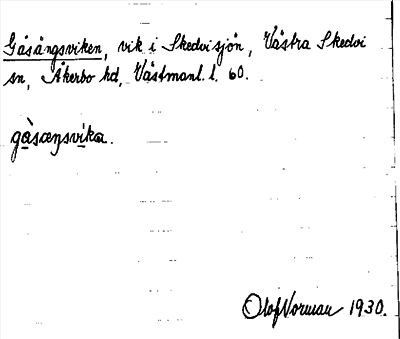 Gåsängsviken, vik i Skedvisjön, Västra Skedvi
sn, Åkerbo hd, Västmanl. l. 60.
gàsæŋsvika.
Olof Norman 1930.